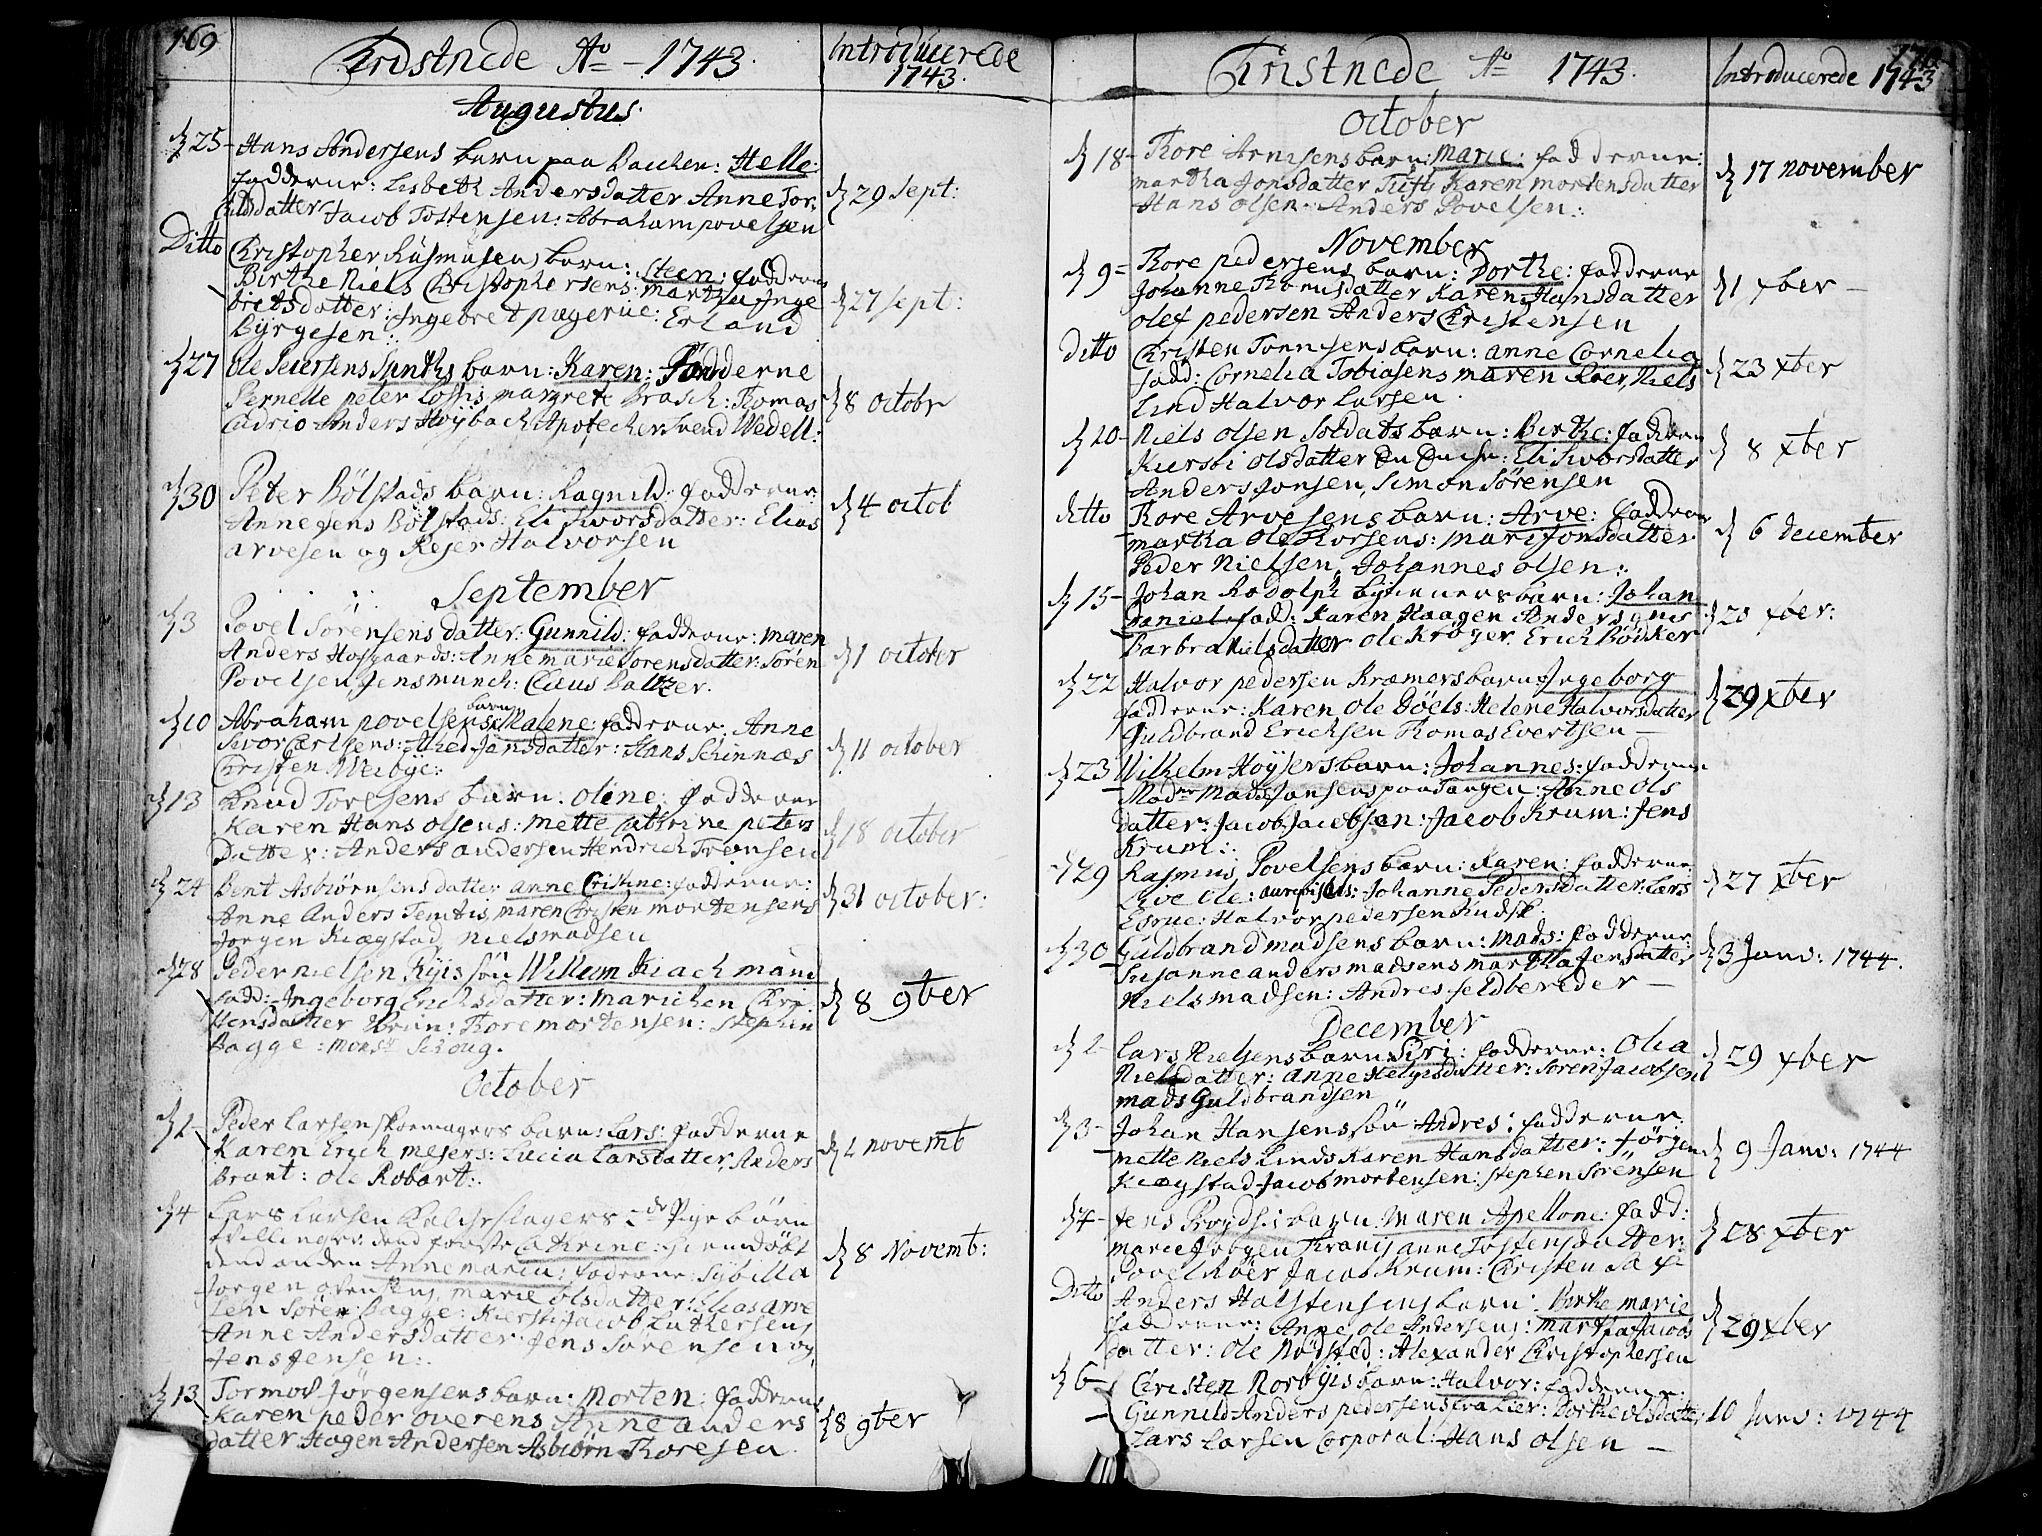 169
Christnede Ao 1743.
Introducerede
1743.
Augustus.
d 25 Hans Andersens barn paa Bacchen: Helle:
fadderne: Lisbeth Andersdatter Anne Tor-
kildsdatter Jacob Tostensen: Abraham povelsen
d 29 Sept:
Ditto Christopher Rasmusens barn: Steen: fadderne
Birthe Niels Christophersens: Martha Inge
bretsdatter: Ingebret pægerne: Erland
Byrgesen:
d 27 sept:
d 27 Ole Seiersens barn: Karen: Fadderne
Pernelle peter margrete Brasch: Thomas
Anders Høybach Apothecher Svend Wedell:
d 8 octobr
d 30 Peter Bölstads barn: Ragnild: fadderne:
Anne Jens Bölstads: Eli Svorsdatter: Elias
arvesen og Rejer Halvorsen
d 4 octob
September
d 3 Povel Sörensens datter: Gunnild: fadderne: maren
Anders Hofgaards: Anne marie Sorensdatter: Sören
Povelsen, Jens munch: Claus Baltzer.
d 1 october
d 10 Abraham povelsens barn Malene: fadderne: Anne
Svor Carlsens: Jansdatter: Hans Schinnæs
Christen Weibye:
d 11 october
d 13 Knud Toresens barn: oline: fadderne
Karen Hans olsens: Mette Cathrine peters
Datter: Anders andersen Hendrich Trensen
d 18 october
d 24 Bent Asbiörnsens datter: anne Cristine: fadderne:
Anne Anders maren Christen mortensens
Jorgen Kiægstad, Niels madsen
d 31 october:
d 28 Peder nielsen Ryis sön Willum Kiachmann
fadd: Ingeborg Erichsdatter: Marichen Chri-
stensdatter Brun: Thore mortensen: Stephen
Bagge: monsr Schoug.
d 8 9ber
October
d 2 Peder Larsen skomagers barn: Lars: fadderne
Karen Erich mejers: Lucia Larsdatter, Anders
Brant: ole Robart:
d 2 novemb
d 4 Lars Larsen 2de Pige börn
tvillinger: dend förste Cathrine: hiemdöbt
dend anden Anne maria: faderne: Sybilla
Jorgen marie olsdatter: Elias arve
sen Sören Bagge: Kiersti Jacob Luthersens
Anne Andersdatter: Jens Sörensen og
Jens Jensen:
d 8 Novemb:
d 13 Tormod Jörgensens barn: Morten: fadderne
Karen peder overens Anne anders
datter Hagen Andersen Asbiörn Thoresen
d 8 9ber
170
Christnede Ao 1743.
Introducerede 1743
October
d 18 Thore Arnesens barn: Marie: fadderne:
martha Jonsdatter Karen mortensdatter
Hans olsen: Anders Povelsen:
d 17 november
November
d 9 Thore pedersens barn: Dorthe: fadderne
Johanne Thomisdatter Karen Hansdatter
olef pedersen Anders Christensen
d 1 xber
ditto Christen Tönnesens barn: anne Cornelia
fadd: Cornelia Tobiasens maren Röer Niels
Lind Halvor Larsen.
d 23 xber
d 10 Niels olsen Soldats barn: Birthe: fadderne
Kiersti olsdatter Eli Svorsdatter
Anders Jonsen, Simon Sörensen
d 8 xber
ditto Thore Arvesens barn: Arve: fadderne
martha Ole Thorsens: mari Jonsdatter
Peder Nielsen, Johannes olsen:
d 6 december
d 15 Johan Rodolph barn: Johan
Daniel fadd: Karen Haagen Anders
Barbra Nielsdatter ole Kröger: Erich Bödker
d 20 xber:
d 22 Halvor pedersen Kræmers barn: Ingeborg
fadderne: Karen Ole Böels: Helene Halvorsdatter
Guldbrand Erichsen Thomas Evertsen
d 29 xber
d 23 Wilhelm Höysers barn: Johannes: fadderne
Madme Mads Jansens paa Tangen: Anne Ols
datter: Jacob Jacobsen: Jacob Krum: Jens
Krum:
d 29 Rasmus Povelsens barn: Karen: fadderne
Live Ole: Johanne Pedersdatter: Lars
Halvor pedersen
d 27 xber
d 30 Guldbrand madsens barn: mads: fadderne:
Susanne anders madsens martha Jensdatter
Niels madsen: Andres feldbereder
d 3 Janv: 1744.
December
d 2 Lars Nielsens barn Siri: fadderne: Olia
Nielsdatter: anne Helgesdatter: Sören Jacobsen
mads Guldbrandsen
d 29 xber
d 3 Johan Hansens sön Andres: fadderne:
mette Niels Linds Karen Hansdatter: Jörgen
Kiægstad Jacob mortensen: Stephen Sörensen
d 9 Janv: 1744
d 4 Jens barn: maren Apellone: fadd:
marie Jörgen anne Tostensdatter:
Povel Röer Jacob Krum: Christen
d 28 xber
Ditto Anders Halstensens barn: Berthe marie
fadderne: Anne ole Andersens: martha Jacobs
datter: ole Rödsted: Alexander Christophersen
d 29 xber
d 6 Christen Norbyis barn: Halvor: fadderne:
Gunnild Anders pedersens Dorthe olsdatter
Lars Larsen Corporal: Hans olsen
10 Janv: 1744